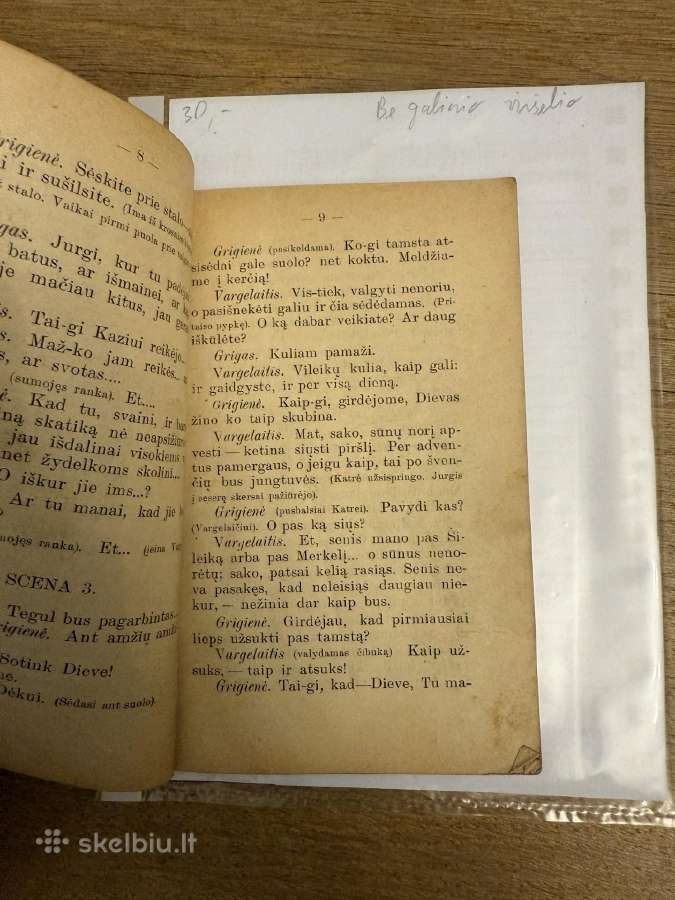 30,- Be galinio viršelio
— 8 —
Grigienė. Sėskite prie stalo—
i ir sušilsite. (Ima iš krosnies
stalo. Vaikai pirmi puola prie
gas. Jurgi, kur tu padėjai
batus, ar išmainei, ar
je mačiau kitus, jau
s. Tai-gi Kaziui reikėjo..
s. Maž-ko jam reikės...
s, ar svotas....
(sumojęs ranka). Et....
ė. Kad tu, svaini, ir
ną skatiką nė neapsižiūr
jau išdalinai visokiems
net žydelkoms skolini...
O iškur jie ims...?
Ar tu manai, kad jie
?
mojęs ranka). Et... (įeina Var
SCENA 3.
Tegul bus pagarbintas...
igienė. Ant amžių amž
Sotink Dieve!
ne.
Dėkui. (Sėdasi ant suolo)
— 9 —
Grigienė (pasikeldama). Ko-gi tamsta at-
sisėdai gale suolo? net koktu. Meldžia-
me į kerčią!
Vargelaitis. Vis-tiek, valgyti nenoriu,
o pasišnekėti galiu ir čia sėdėdamas. (Pri-
taiso pypkę). O ką dabar veikiate? Ar daug
iškūlėte?
Grigas. Kuliam pamaži.
Vargelaitis. Vileikų kulia, kaip gali:
ir gaidgystė, ir per visą dieną.
Grigienė. Kaip-gi, girdėjome, Dievas
žino ko taip skubina.
Vargelaitis. Mat, sako, sūnų norį ap-
vesti — ketina siųsti piršlį. Per adven-
tus pamergaus, o jeigu kaip, tai po šven-
čių bus jungtuvės. (Katrė užsispringo. Jurgis
į seserę skersai pažiūrėjo).
Grigienė (pusbalsiai Katrei). Pavydi kas?
(Vargelaičiui). O pas ką siųs?
Vargelaitis. Et, senis mano pas Ši-
leiką arba pas Merkelį... o sūnus neno-
rėtų; sako, patsai kelią rasiąs. Senis ne-
va pasakęs, kad neleisiąs daugiau nie-
kur, — nežinia dar kaip bus.
Grigienė. Girdėjau, kad pirmiausiai
lieps užsukti pas tamstą?
Vargelaitis (valydamas čibuką) Kaip už-
suks, — taip ir atsuks!
Grigienė. Tai-gi, kad—Dieve, Tu ma-
skelbiu.lt